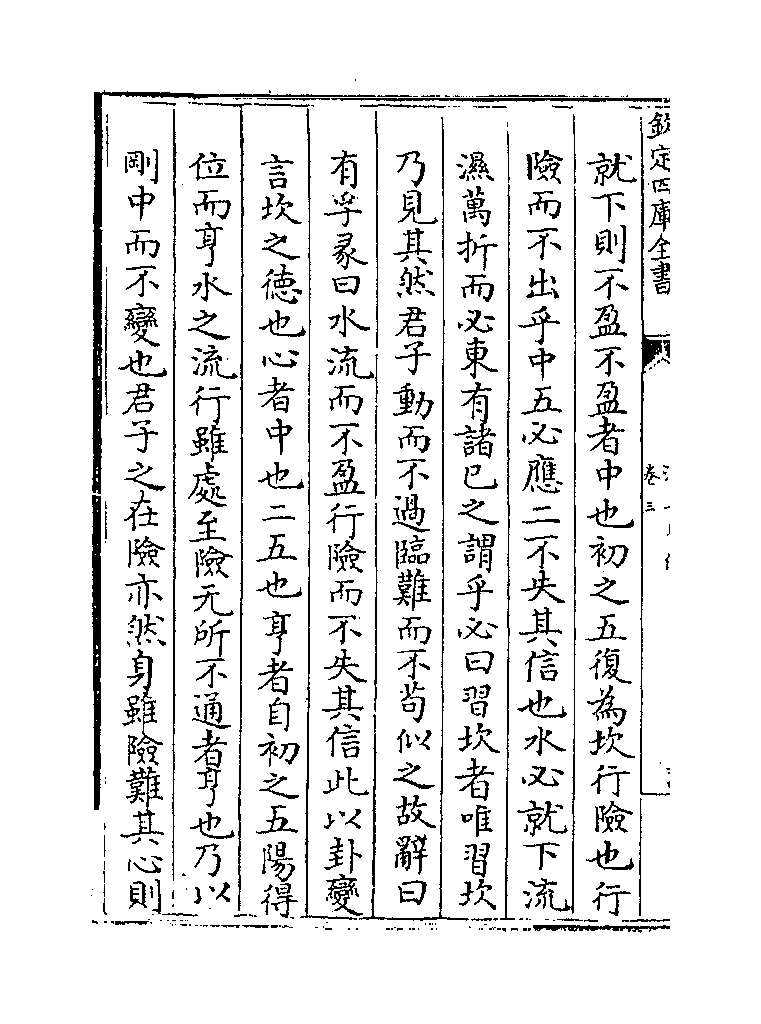 欽定四庫全書
卷三
就下則不盈不盈者中也初之五復為坎行險也行
險而不出乎中五必應二不失其信也水必就下流
濕萬折而必東有諸已之謂乎必曰習坎者唯習坎
乃見其然君子動而不過臨難而不苟似之故辭曰
有孚彖曰水流而不盈行險而不失其信此以卦變
言坎之徳也心者中也二五也亨者自初之五陽得
位而亨水之流行雖處至險无所不通者亨也乃以
剛中而不變也君子之在險亦然身雖險難其心則